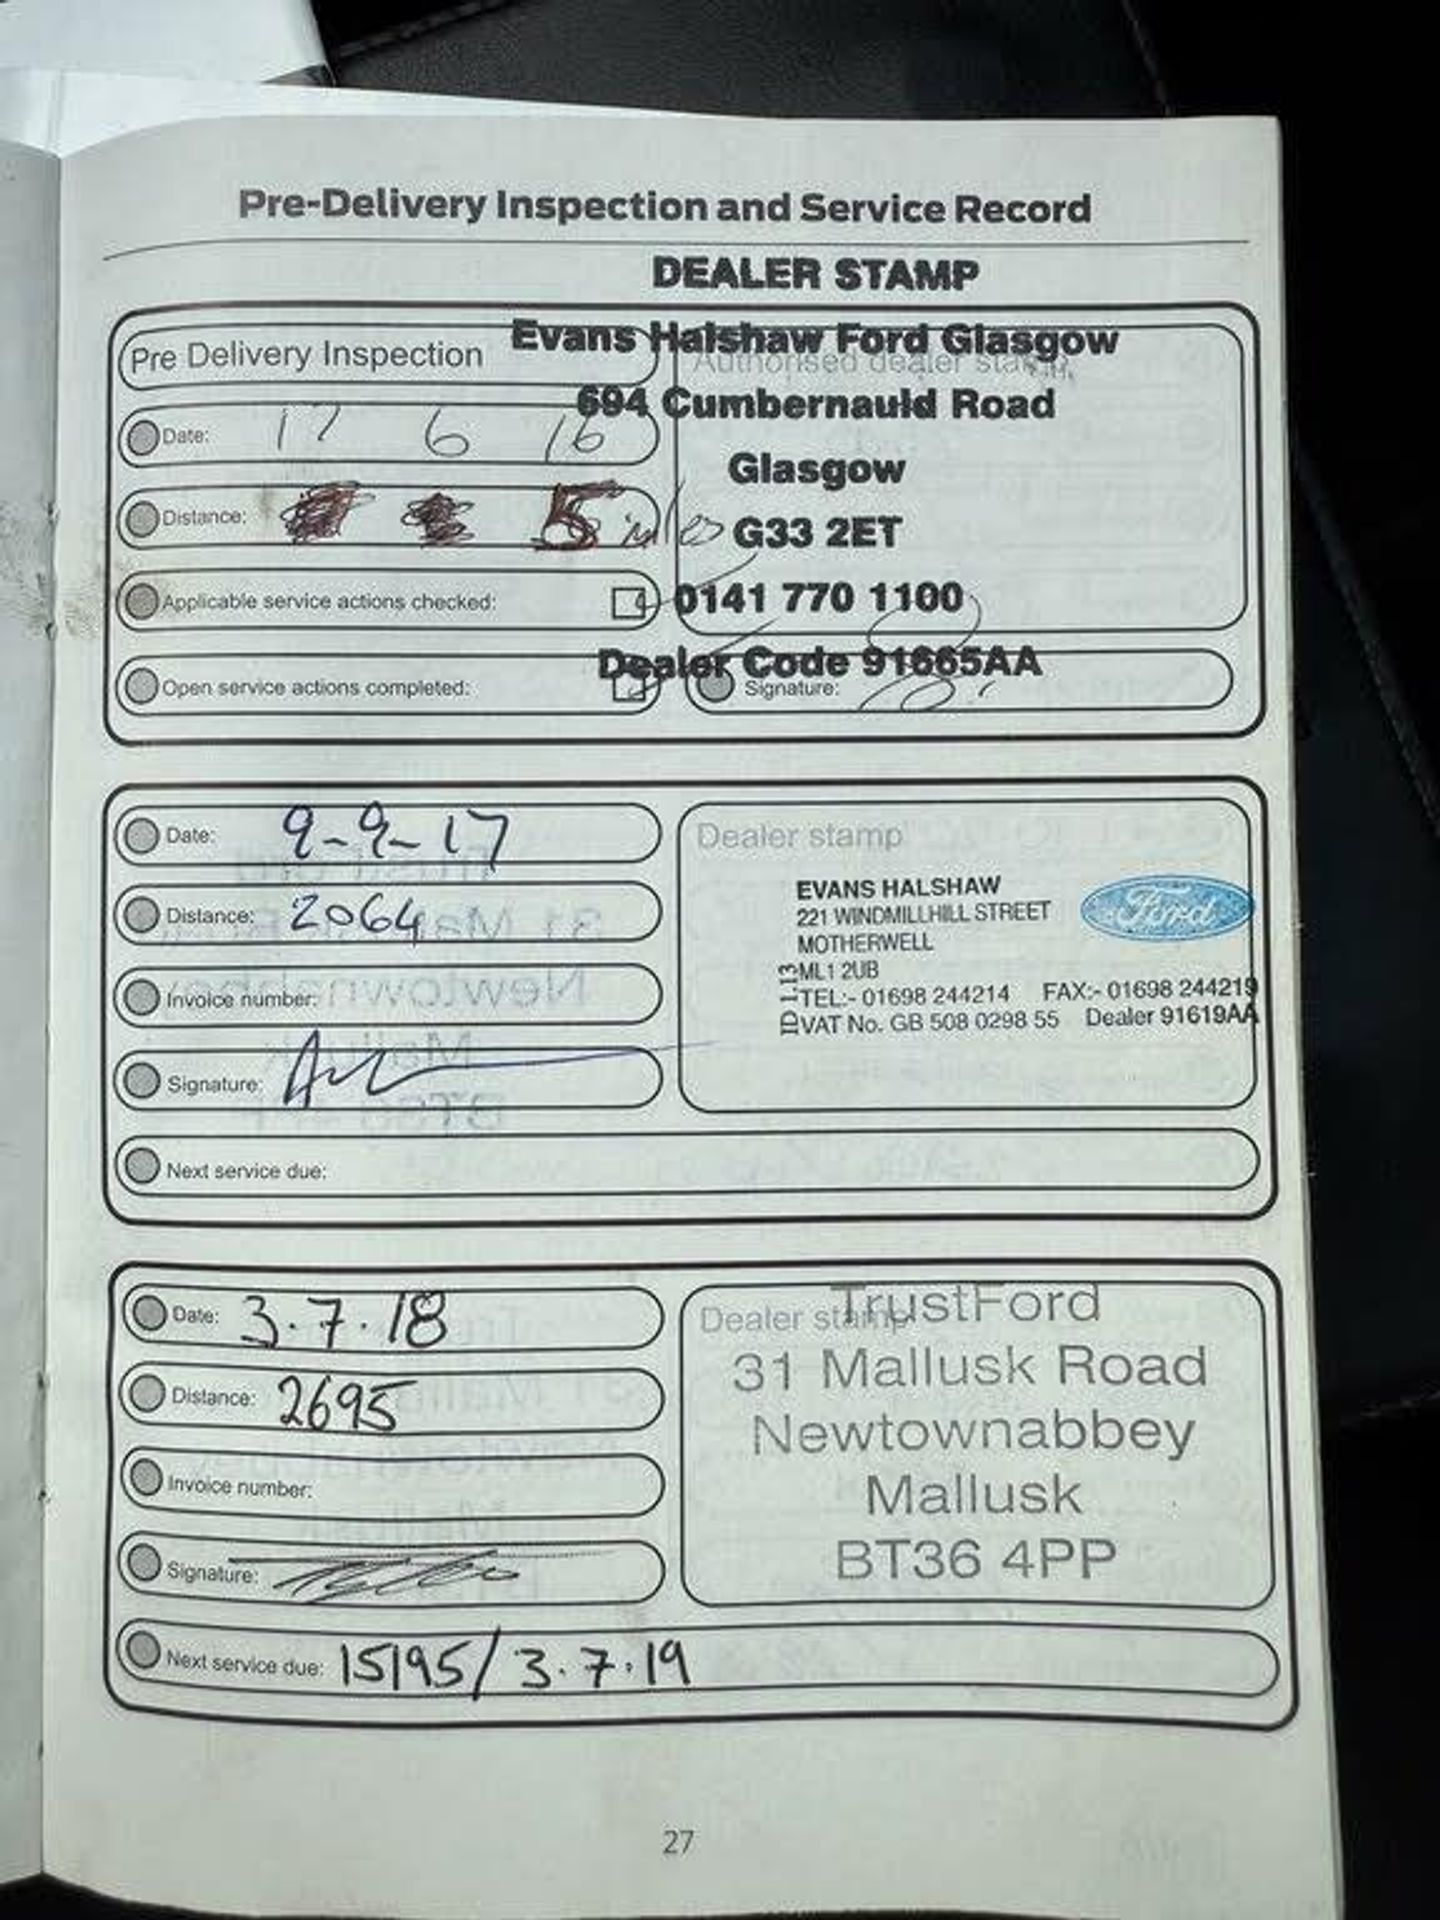 Pre-Delivery Inspection and Service Record
DEALER STAMP
Evans Halshaw Ford Glasgow
Pre Delivery Inspection
Authorised dealer stamp
694 Cumbernauld Road
Date: 17 6 16
Glasgow
Distance: 5 miles
G33 2ET
Applicable service actions checked:
0141 770 1100
Dealer Code 91665AA
Open service actions completed:
Signature:
Date: 9-9-17
Distance: 2064
Invoice number:
Signature:
Dealer stamp
EVANS HALSHAW
221 WINDMILLHILL STREET
MOTHERWELL
ML1 2UB
TEL:- 01698 244214 FAX:- 01698 244219
VAT No. GB 508 0298 55 Dealer 91619AA
ID 1.13
Ford
Next service due:
Date: 3.7.18
Distance: 2695
Invoice number:
Signature:
Dealer stamp
TrustFord
31 Mallusk Road
Newtownabbey
Mallusk
BT36 4PP
Next service due: 15195/3.7.19
27